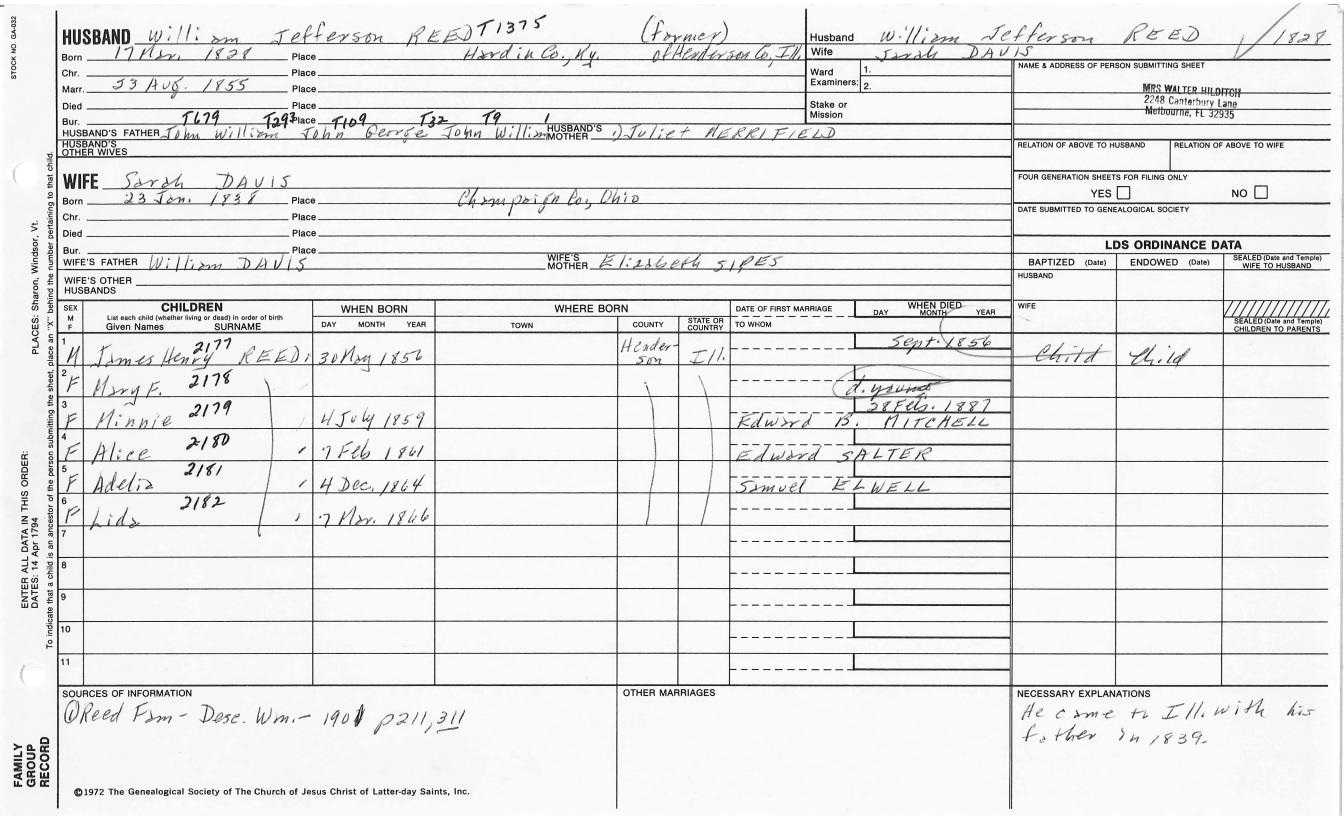 STOCK NO. GA-032
HUSBAND Willi am Jefferson REED T1375 (farmer)
Born 17 Mar. 1828 Place Hardin Co., Ky. of Henderson Co, Ill.
Chr. Place
Marr. 23 Aug. 1855 Place
Died Place
Bur. Place
T679 T293 T109 T32 T9
HUSBAND'S FATHER John William John George John William HUSBAND'S MOTHER Juliet MERRIFIELD
HUSBAND'S OTHER WIVES
WIFE Sarah DAVIS
Born 23 Jan. 1838 Place Champaign Co, Ohio
Chr. Place
Died Place
Bur. Place
WIFE'S FATHER William DAVIS WIFE'S MOTHER Elizabeth SIPES
WIFE'S OTHER HUSBANDS
Husband William Jefferson REED 1828
Wife Sarah DAVIS
Ward Examiners: 1.
2.
Stake or Mission
NAME & ADDRESS OF PERSON SUBMITTING SHEET
MRS WALTER HILDITCH
2248 Canterbury Lane
Melbourne, FL 32935
RELATION OF ABOVE TO HUSBAND RELATION OF ABOVE TO WIFE
FOUR GENERATION SHEETS FOR FILING ONLY
YES NO
DATE SUBMITTED TO GENEALOGICAL SOCIETY
LDS ORDINANCE DATA
BAPTIZED (Date) ENDOWED (Date) SEALED (Date and Temple) WIFE TO HUSBAND
HUSBAND
WIFE
SEALED (Date and Temple) CHILDREN TO PARENTS
SEX M F
CHILDREN
List each child (whether living or dead) in order of birth
Given Names SURNAME
WHEN BORN
DAY MONTH YEAR
WHERE BORN
TOWN COUNTY STATE OR COUNTRY
DATE OF FIRST MARRIAGE
TO WHOM
WHEN DIED
DAY MONTH YEAR
1 M James Henry 2177 REED 30 May 1856 Hender-son Ill. Sept. 1856 Child Child
2 F Mary F. 2178 d. young
3 F Minnie 2179 4 July 1859 28 Feb. 1887 Edward B. MITCHELL
4 F Alice 2180 7 Feb 1861 Edward SALTER
5 F Adelia 2181 4 Dec. 1864 Samuel ELWELL
6 F Lida 2182 7 Mar. 1866
7
8
9
10
11
SOURCES OF INFORMATION
① Reed Fam - Desc. Wm. - 1901 p211, 311
OTHER MARRIAGES
NECESSARY EXPLANATIONS
He came to Ill. with his
father in 1839.
©1972 The Genealogical Society of The Church of Jesus Christ of Latter-day Saints, Inc.
FAMILY GROUP RECORD
ENTER ALL DATA IN THIS ORDER:
DATES: 14 Apr 1794
PLACES: Sharon, Windsor, Vt.
To indicate that a child is an ancestor of the person submitting the sheet, place an "X" behind the number pertaining to that child.